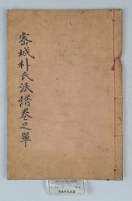 密城朴氏派譜卷之單